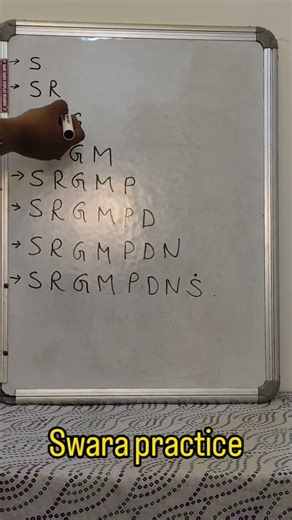 → S
→ S R
G
G M
→ S R G M P
→ S R G M P D
→ S R G M P D N
→ S R G M P D N Ṡ .
Swara practice